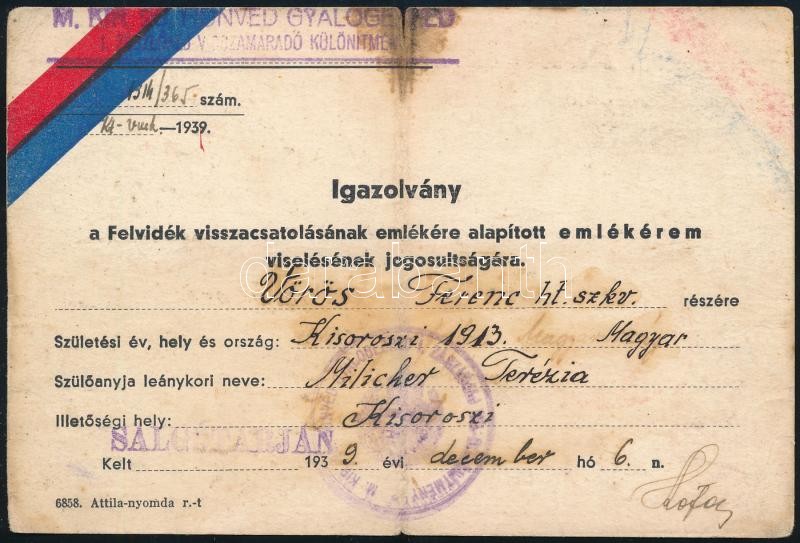 M. KIR. HONVÉD GYALOGEZRED
I. ZÁSZLÓALJ VISSZAMARADÓ KÜLÖNITMÉNY
/365. szám.
—1939.
Igazolvány
a Felvidék visszacsatolásának emlékére alapított emlékérem
viselésének jogosultságára.
darabanth
Vörös Ferenc ht. szkv. részére
Születési év, hely és ország: Kisoroszi 1913. Magyar
Szülőanyja leánykori neve: Milicher Terézia
Illetőségi hely: Kisoroszi
SALGÓTARJÁN
Kelt 193 9. évi december hó 6. n.
6858. Attila-nyomda r.-t